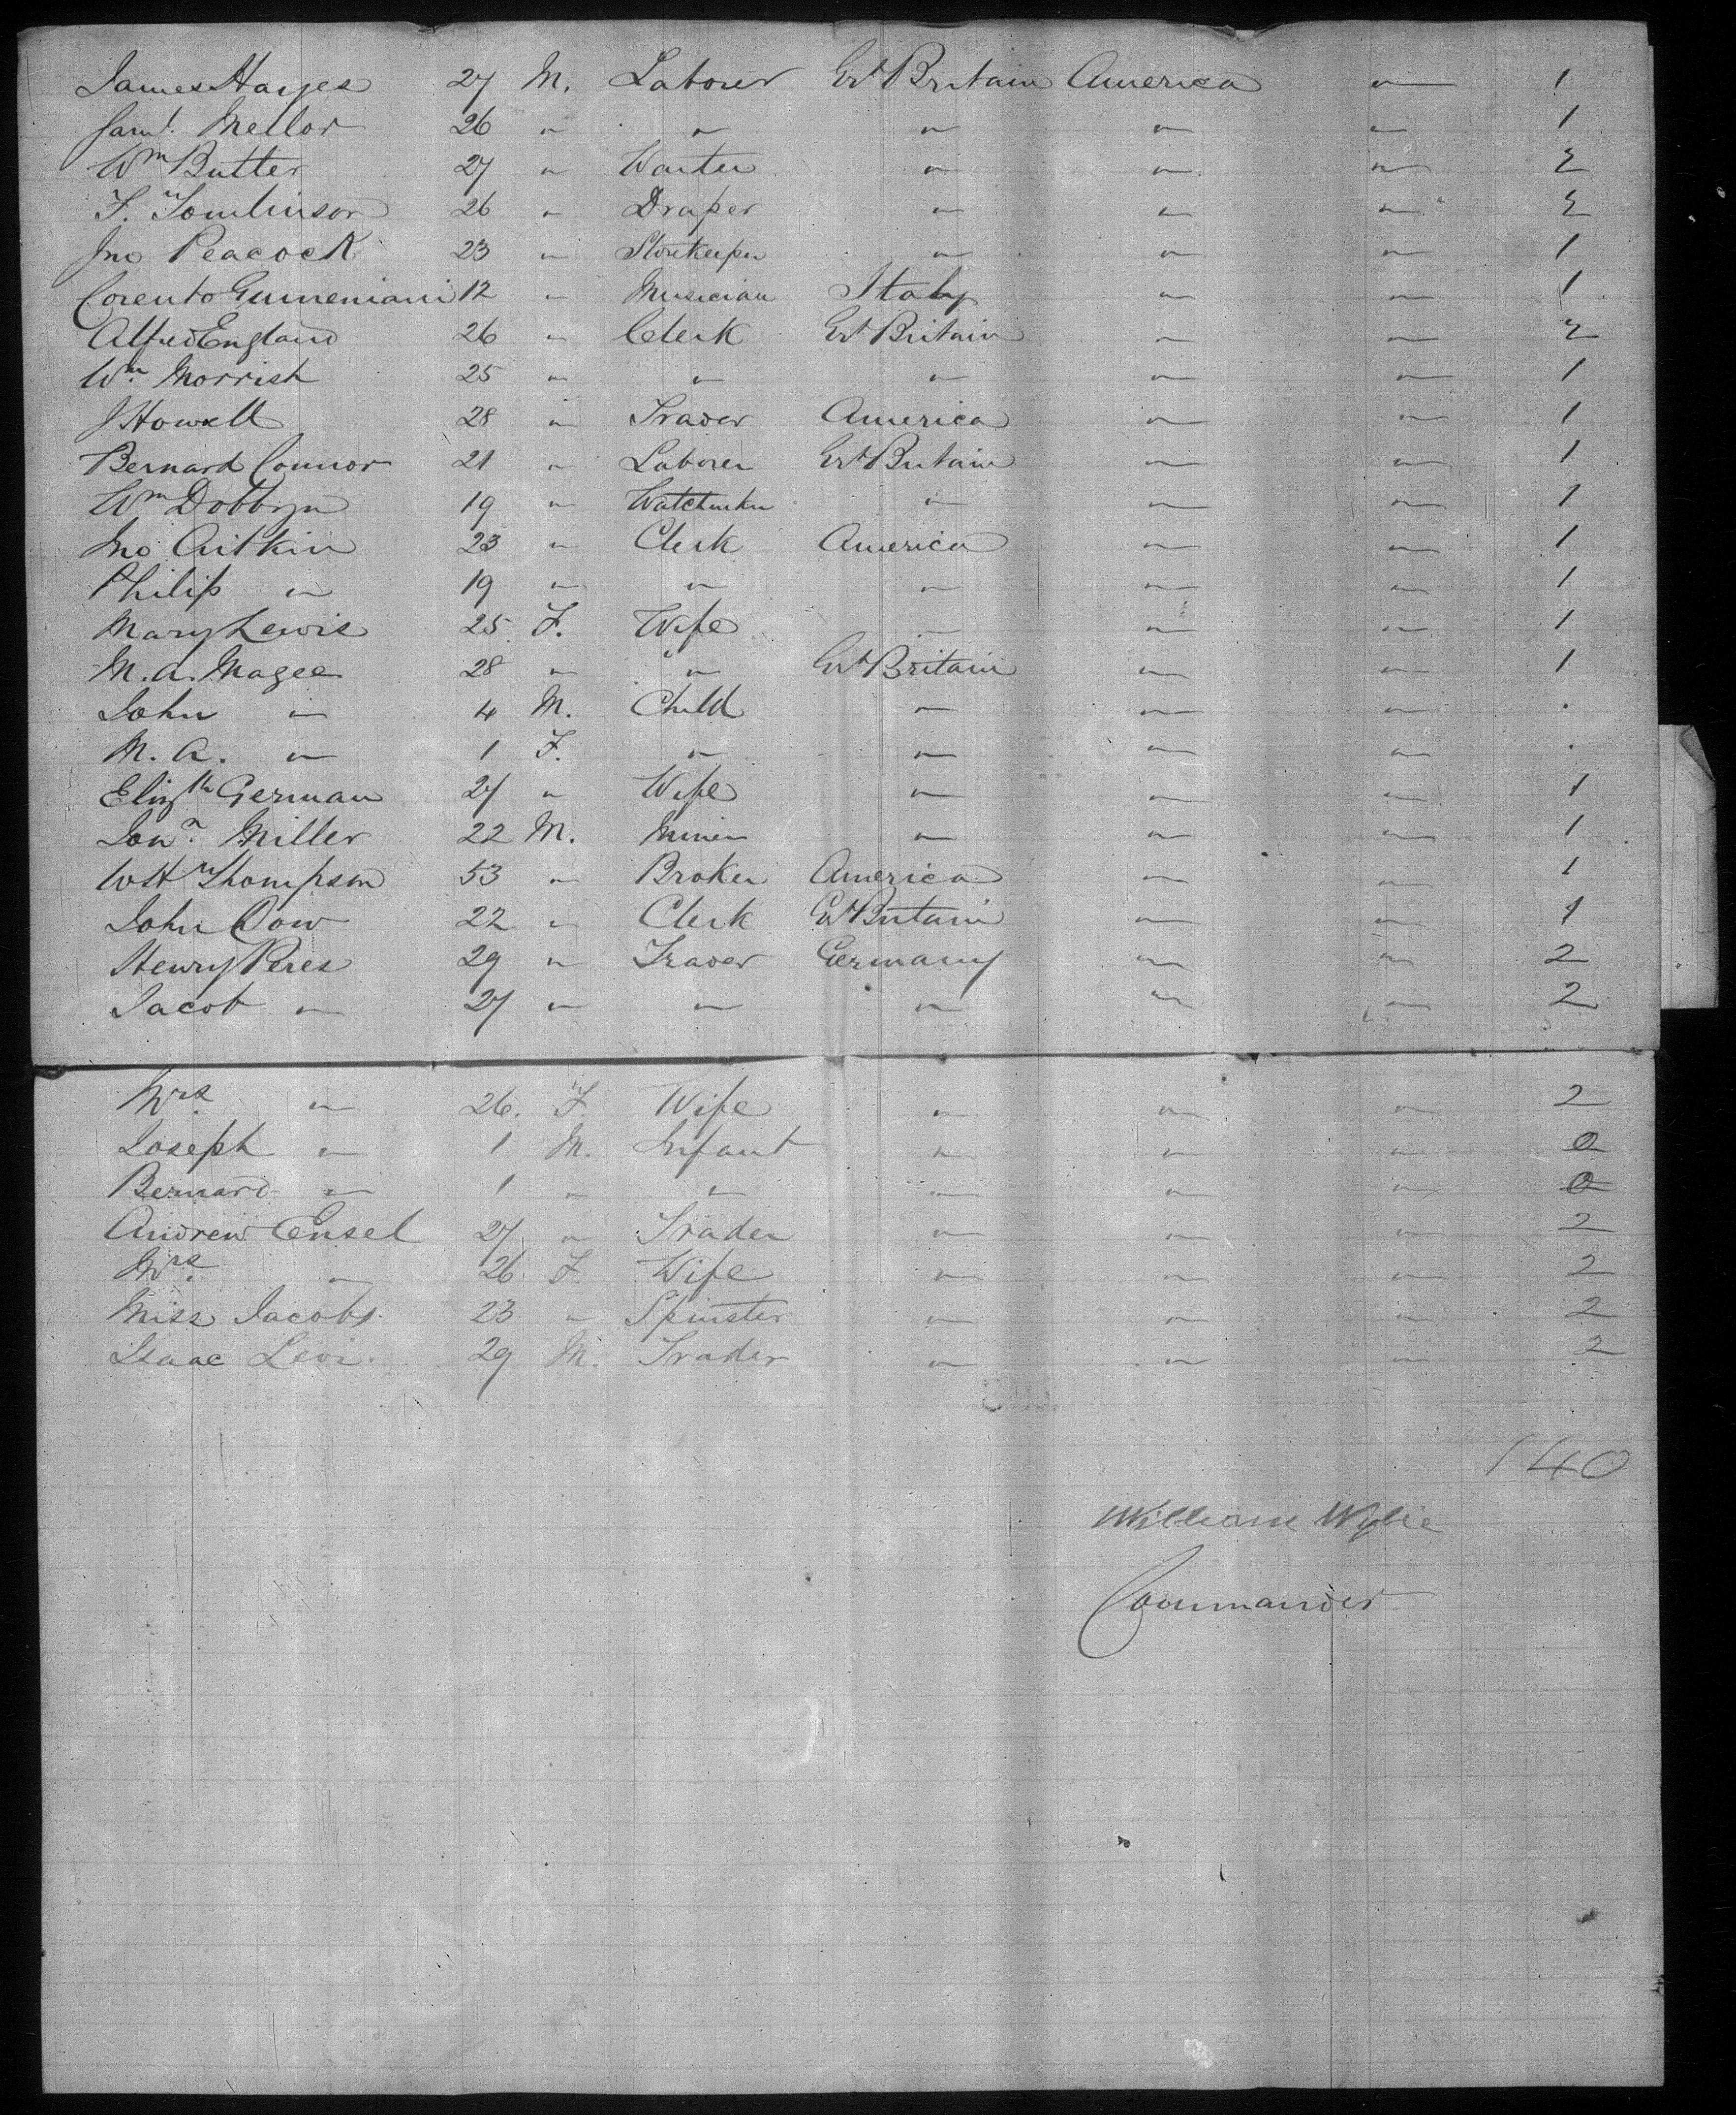 James Hayes 27 M. Laborer Grt Britain America " 1
Saml. Mellor 26 " " " " " 1
Wm Butler 27 " Waiter " " " 2
F. Tomlinson 26 " Draper " " " 2
Jno Peacock 23 " Storekeeper " " " 1
12 " Musician Italy " " 1
Alfred England 26 " Clerk Grt Britain " " 2
Wm. Morrish 25 " " " " " 1
J Howell 28 " Trader America " " 1
Bernard Connor 21 " Laborer Grt Britain " " 1
Wm Dobbyn 19 " Watchmkr " " " 1
Jno Aitkin 23 " Clerk America " " 1
Philip " 19 " " " " " 1
Mary Lewis 25 F. Wife " " " 1
M. A. Magee 28 " " Grt Britain " " 1
John " 4 M. Child " " " .
M. A. " 1 F. " " " " .
Elizth German 27 " Wife " " " 1
Jonn. Miller 22 M. Miner " " " 1
W H Thompson 53 " Broker America " " 1
John Dow 22 " Clerk Grt Britain " " 1
Henry Peres 29 " Trader Germany " " 2
Jacob " 27 " " " " " 2
Mrs. " 26. F. Wife " " " 2
Joseph " 1 M. Infant " " " 0
Bernard " 1 " " " " " 0
Andrew Ensel 27 " Trader " " " 2
Mrs. " 26 F. Wife " " " 2
Miss Jacobs. 23 " Spinster " " " 2
Isaac Levi. 29 M. Trader " " " 2
140
William Wylie
Commander